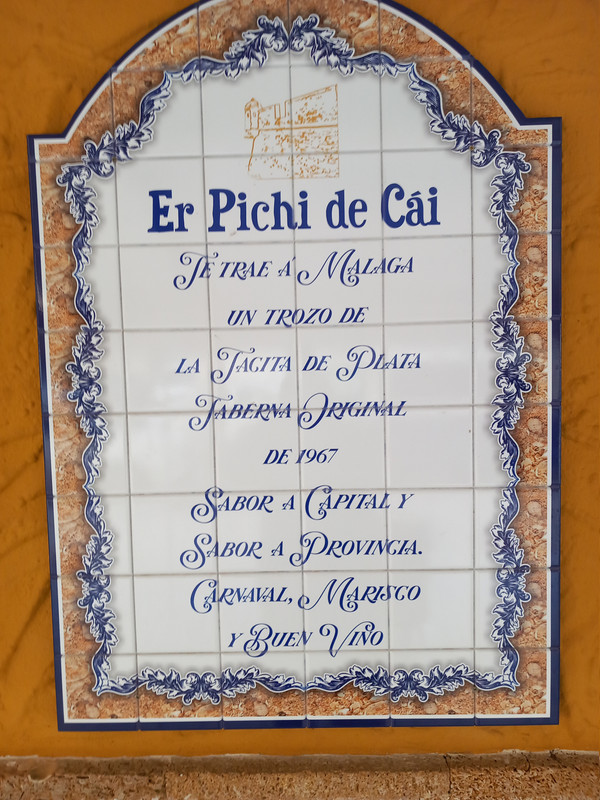 Er Pichi de Cái
Te trae á Malaga
un trozo de
la Tacita de Plata
Taberna Original
de 1967
Sabor a Capital y
Sabor a Provincia.
Carnaval, Marisco
y Buen Vino